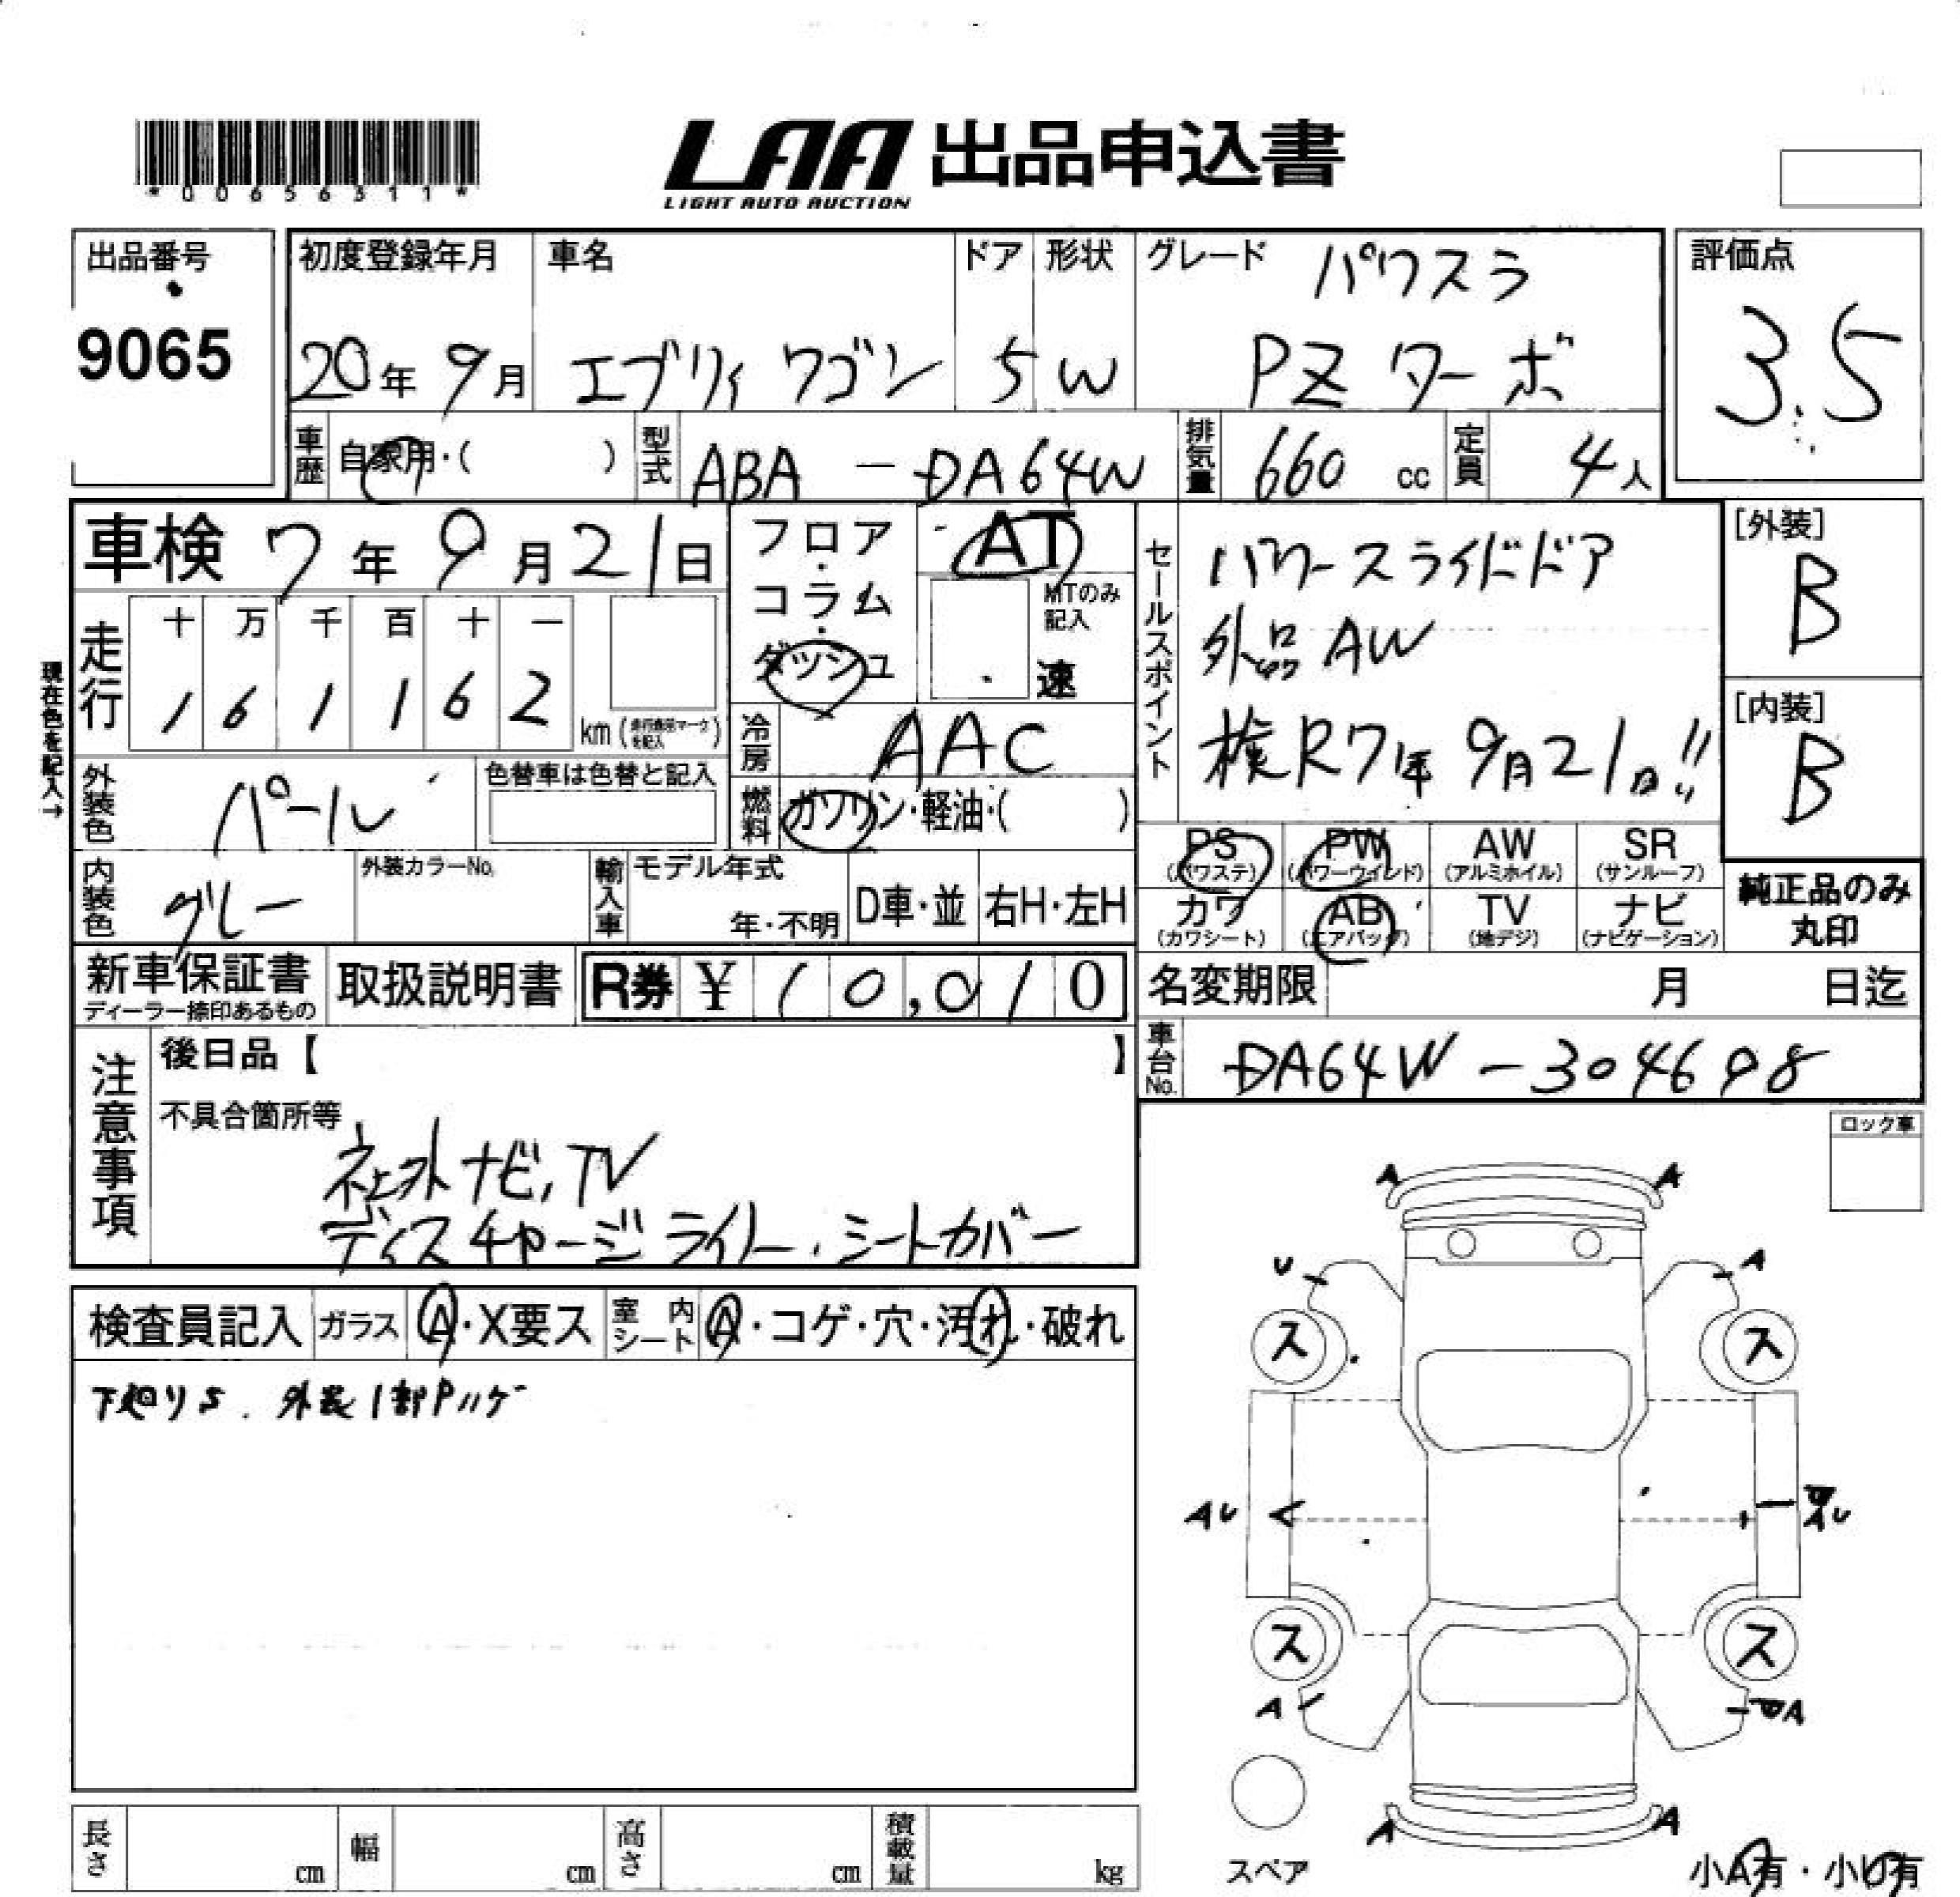 *00656311*
LAA 出品申込書
LIGHT AUTO AUCTION
出品番号
9065
初度登録年月
20年 9月
車名
エブリィ ワゴン
ドア
5
形状
W
グレード パワスラ
PZ ターボ
評価点
3.5
車歴 自家用・( )
型式 ABA - DA64W
排気量 660 cc
定員 4人
車検 7年 9月 21日
フロア・コラム・ダッシュ
AT
MTのみ記入
速
現在色を記入→
走行
十 万 千 百 十 一
1 6 1 1 6 2
km (走行疑義マークを記入)
冷房 AAC
外装色 パール
色替車は色替と記入
燃料 ガソリン・軽油・( )
内装色 グレー
外装カラーNo.
輸入車
モデル年式
年・不明
D車・並
右H・左H
セールスポイント
パワースライドドア
外品 AW
検R7年 9月21日!!
[外装]
B
[内装]
B
PS (パワステ)
PW (パワーウインド)
AW (アルミホイル)
SR (サンルーフ)
カワ (カワシート)
AB (エアバッグ)
TV (地デジ)
ナビ (ナビゲーション)
純正品のみ
丸印
新車保証書
ディーラー捺印あるもの
取扱説明書
R券 ¥ 10,010
名変期限 月 日迄
車台No. DA64W-304698
注意事項
後日品【 】
不具合箇所等
社外ナビ, TV
ディスチャージライト、シートカバー
ロック車
検査員記入
ガラス A・X要ス
室内シート A・コゲ・穴・汚れ・破れ
下廻りS. 外装1部Pハゲ
A A
U A
ス ス
AU
AU
ス ス
A
A
A A
スペア
小A有・小U有
長さ cm
幅 cm
高さ cm
積載量 kg